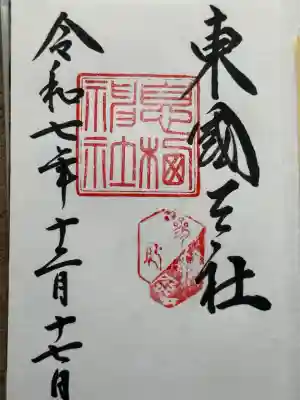 東國三社
息栖
神社
令和七年十二月十七日